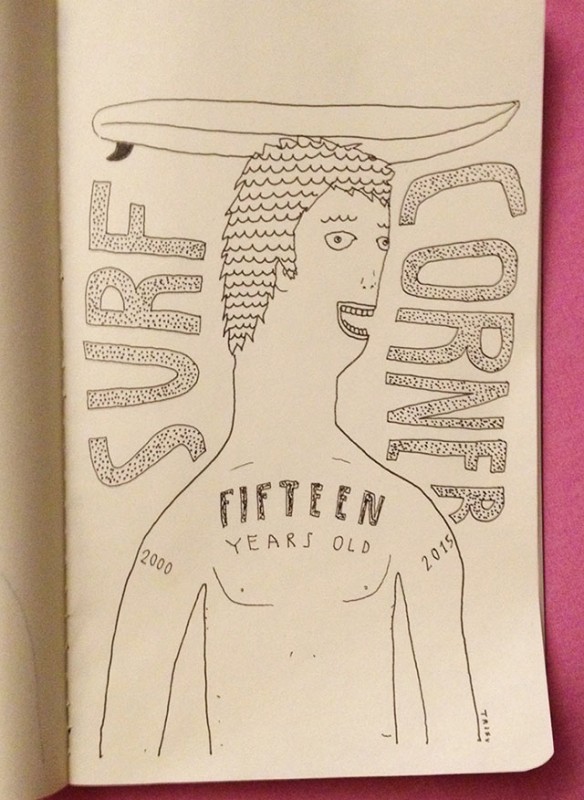 SURF
CORNER
FIFTEEN
YEARS OLD
2000
2015